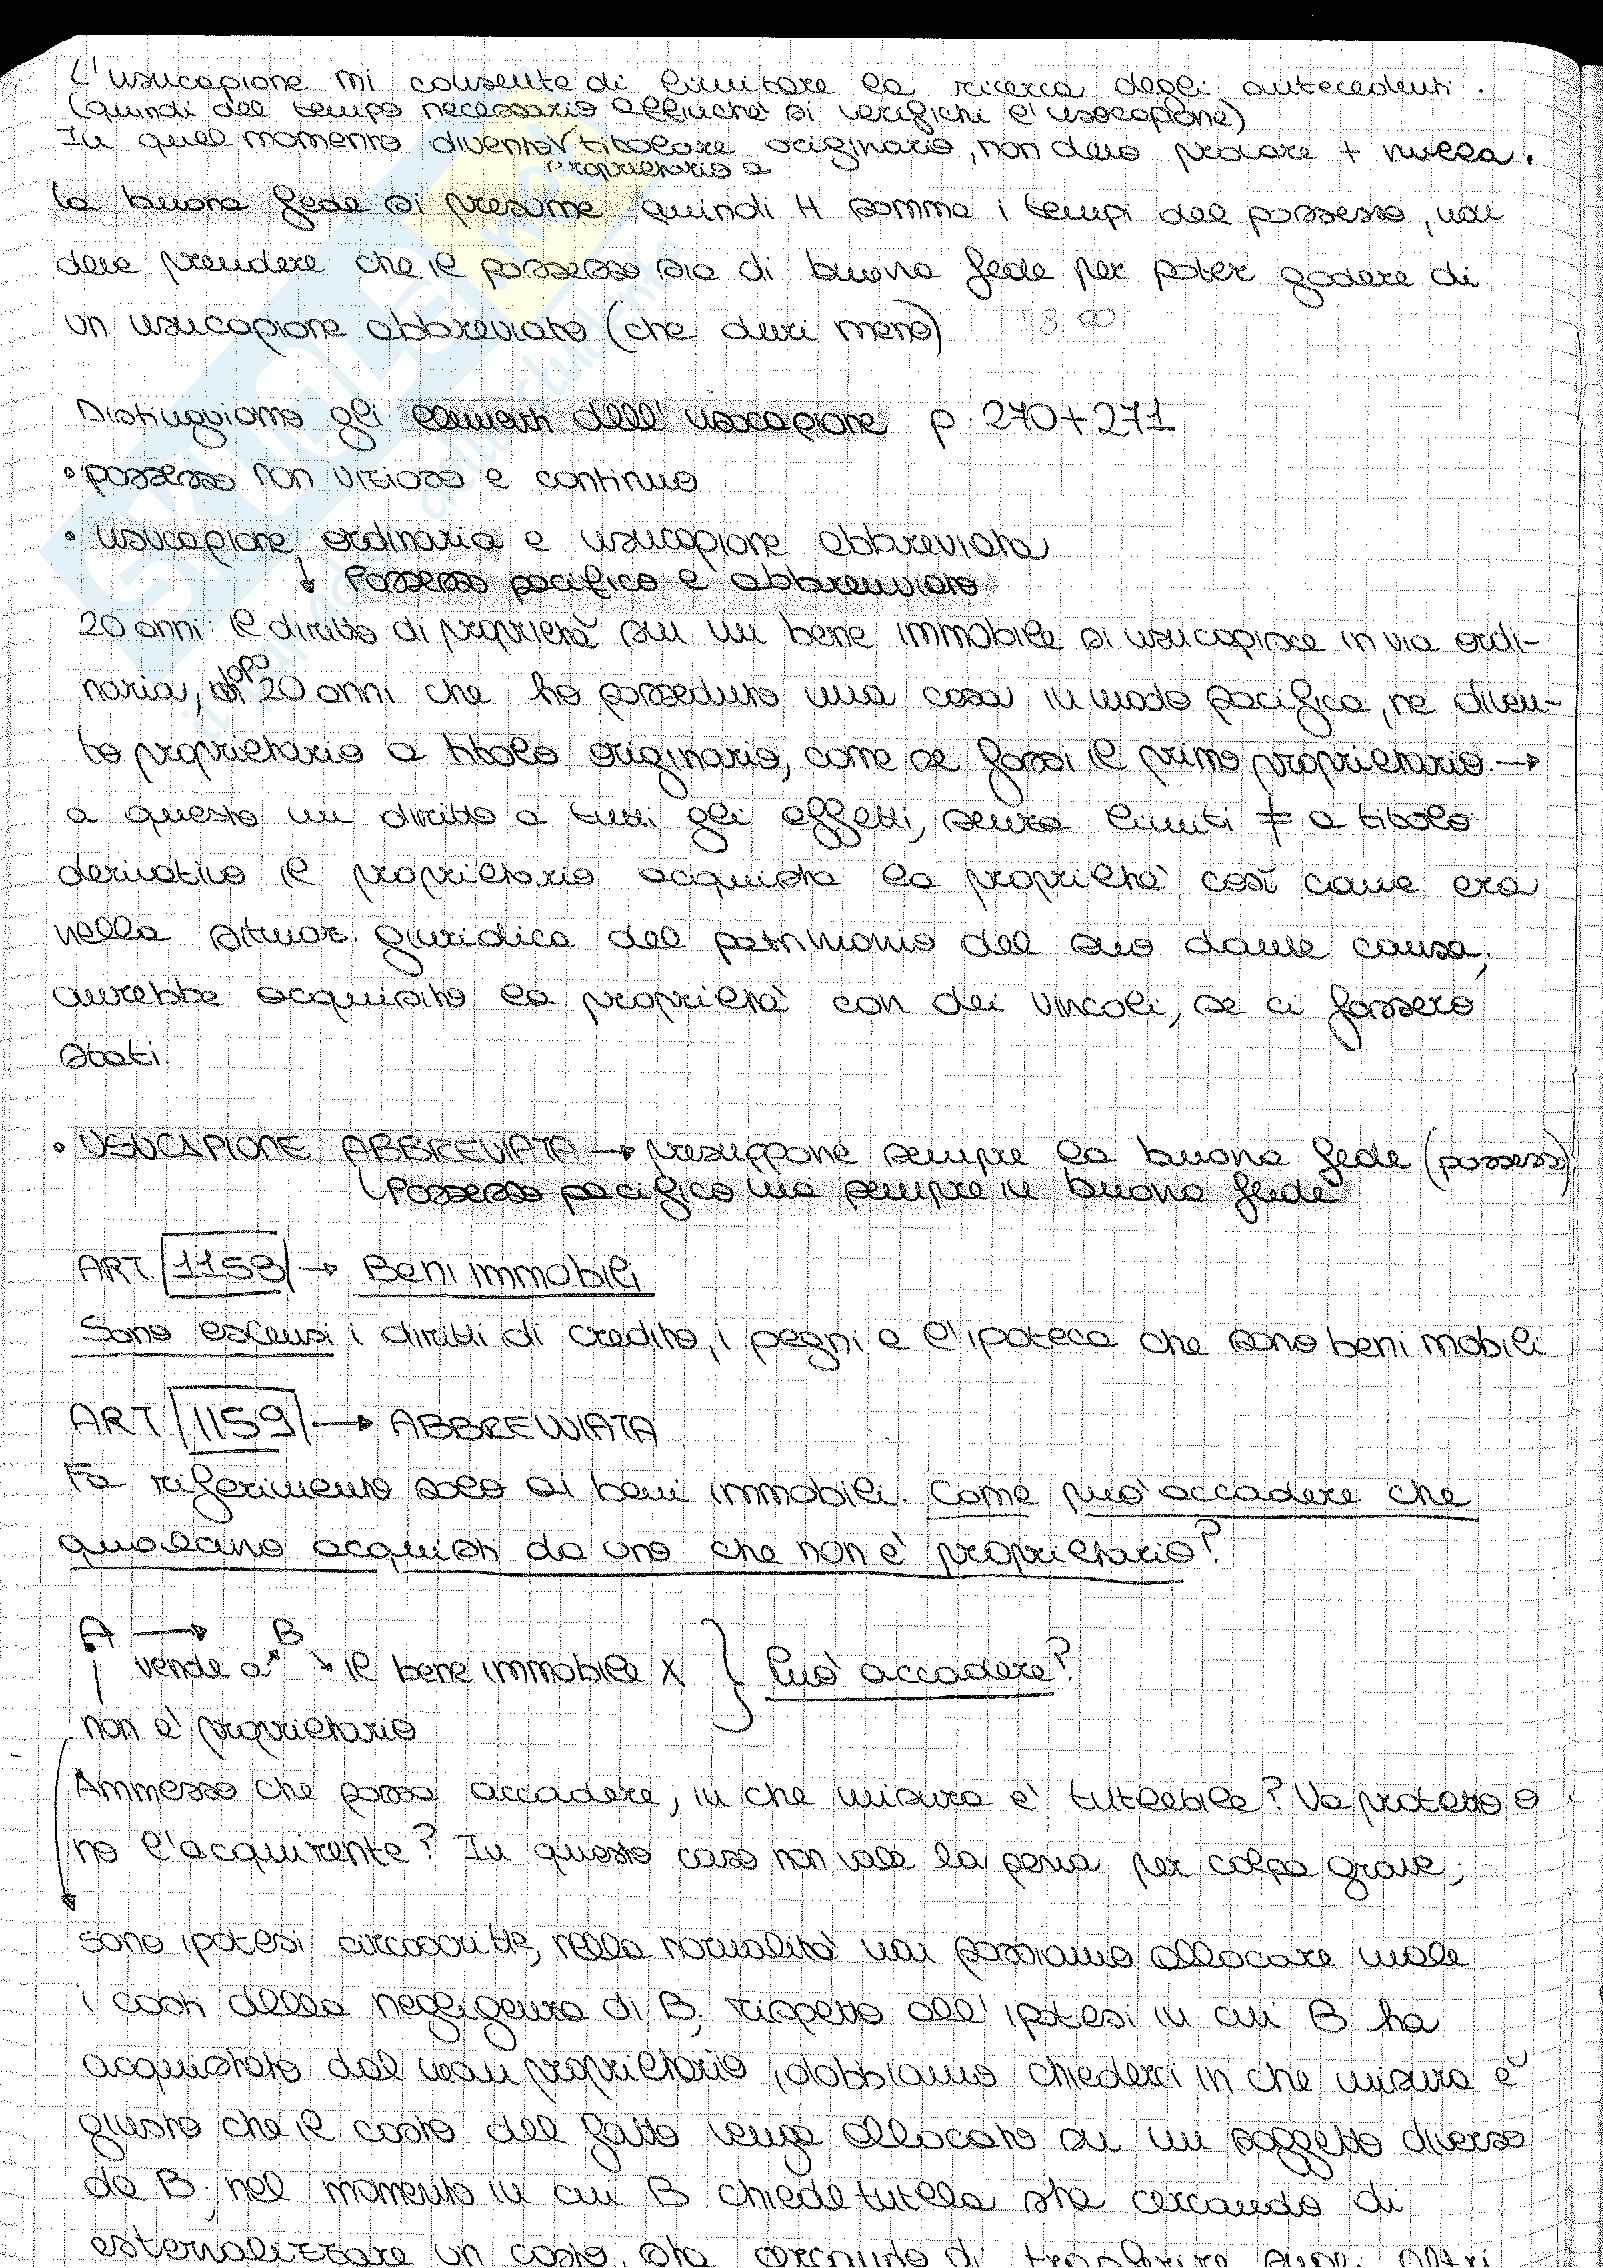 L'usucapione mi consente di limitare la ricerca degli antecedenti.
(quindi del tempo necessario affinché si verifichi l'usucapione)
In quel momento divento titolare originario, non devo provare + nulla.
proprietario a
la buona fede si presume quindi H somma i tempi del possesso, non
deve prendere che il possesso sia di buona fede per poter godere di
un usucapione abbreviato (che duri meno)
Distinguiamo gli elementi dell'usucapione p. 270+271
• possesso non vizioso e continuo
• usucapione ordinaria e usucapione abbreviata
↓ Possesso pacifico e abbreviato
20 anni: il diritto di proprietà su un bene immobile si usucapisce in via ordi-
naria, dopo 20 anni che ho posseduto una cosa in modo pacifica, ne diven-
to proprietario a titolo originario, come se fossi il primo proprietario →
a questo un diritto a tutti gli effetti, senza limiti ≠ a titolo
derivativo il proprietario acquista la proprietà così come era
nella situaz. giuridica del patrimonio del suo dante causa,
avrebbe acquisito la proprietà con dei vincoli, se ci fossero
stati.
• USUCAPIONE ABBREVIATA → presuppone sempre la buona fede (possesso)
Possesso pacifico ma sempre in buona fede
ART 1158 → Beni immobili
Sono esclusi i diritti di credito, i pegni e l'ipoteca che sono beni mobili
ART 1159 → ABBREVIATA
Fa riferimento solo ai beni immobili. Come può accadere che
qualcuno acquisti da uno che non è proprietario?
A → B
vende a ↘ il bene immobile X } Può accadere?
non è proprietario
Ammesso che possa accadere, in che misura è tutelabile? Va protetto o
no l'acquirente? In questo caso non vale la pena per colpa grave,
sono ipotesi circoscritte, nella normalità non possiamo allocare male
i costi della negligenza di B, rispetto all'ipotesi in cui B ha
acquistato dal non proprietario, dobbiamo chiederci in che misura è
giusto che il costo del fatto venga allocato su un soggetto diverso
da B, nel momento in cui B chiede tutela sta cercando di
esternalizzare un costo, sta cercando di trasferire altri